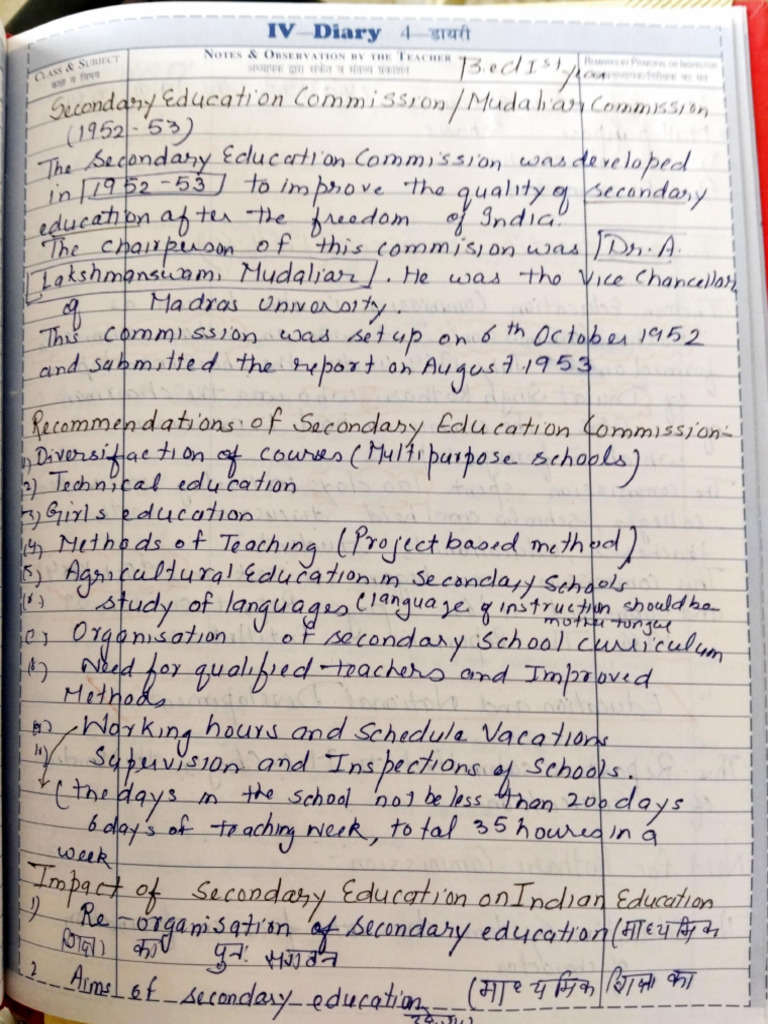 IV Diary 4 डायरी
CLASS & SUBJECT NOTES & OBSERVATION BY THE TEACHER REMARKS BY PRINCIPAL OR INSPECTOR
B.ed Ist year
Secondary Education Commission/Mudaliar Commission
(1952-53)
The Secondary Education Commission was developed
in [1952-53] to improve the quality of secondary
education after the freedom of India.
The chairperson of this commision was [Dr. A.
Lakshmanswami Mudaliar]. He was the Vice Chancellor
of Madras University.
This commission was set up on 6th October 1952
and submitted the report on August 1953
Recommendations of Secondary Education Commission:-
1) Diversifaction of courses (Multipurpose schools)
2) Technical education
3) Girls education
(4) Methods of Teaching (Project based method)
(5) Agricultural Education in secondary Schools
study of languages (language of instruction should be
mother tongue
Organisation of secondary school curriculum
Need for qualified teachers and Improved
Methods
Working hours and Schedule Vacations
Supuvision and Inspections of Schools.
(the days in the school not be less than 200 days
6 days of teaching week, total 35 houred in a
week
Impact of Secondary Education on Indian Education
1) Re-organisation of secondary education (माध्यमिक
का पुनः
2 Aims of secondary education (माध्यमिक शिक्षा का